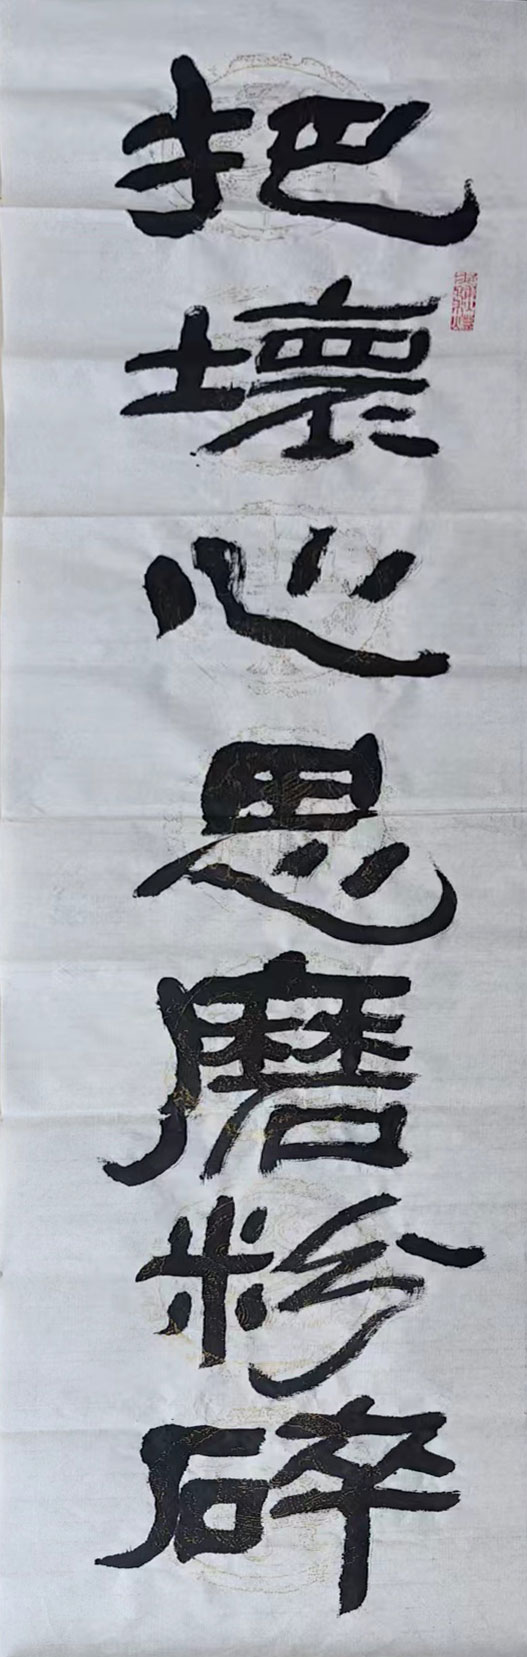 把壞心思磨粉碎